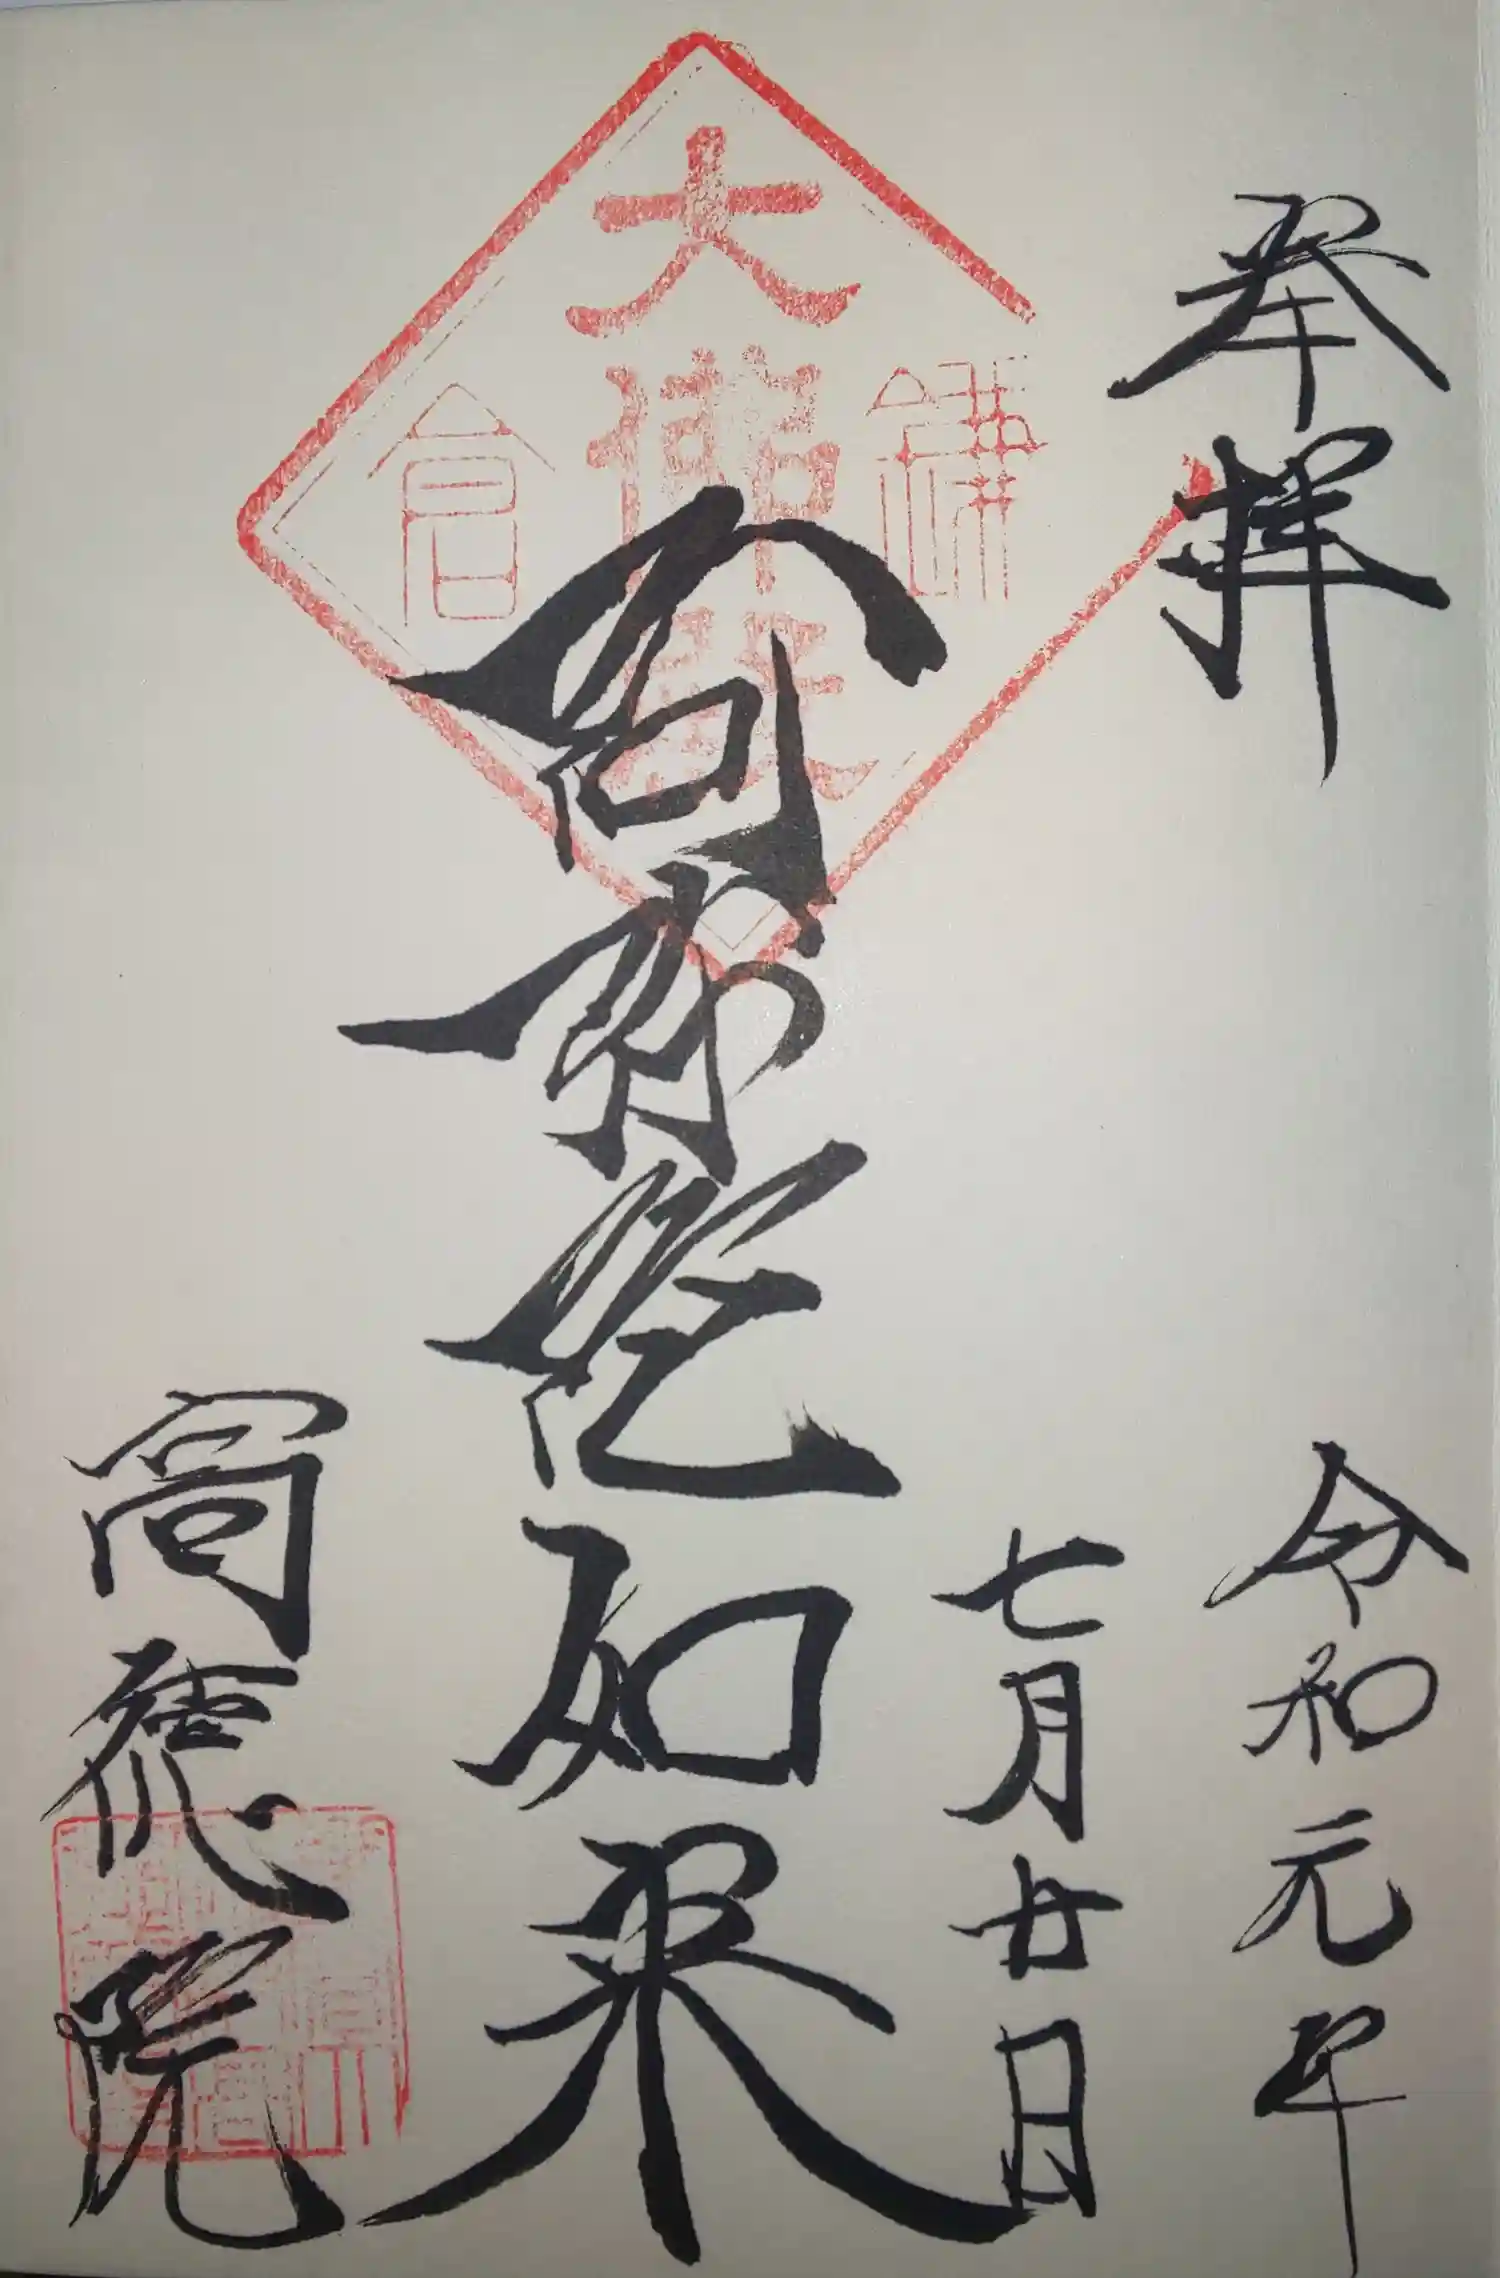 奉拝
令和元年
七月廿日
鎌倉
大佛殿
阿弥陀如来
高徳院